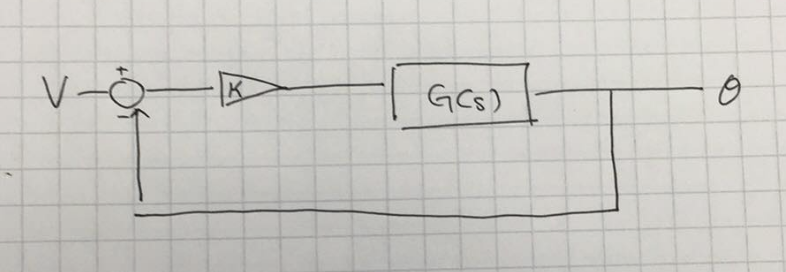 +
V
K
G(s)
θ
-